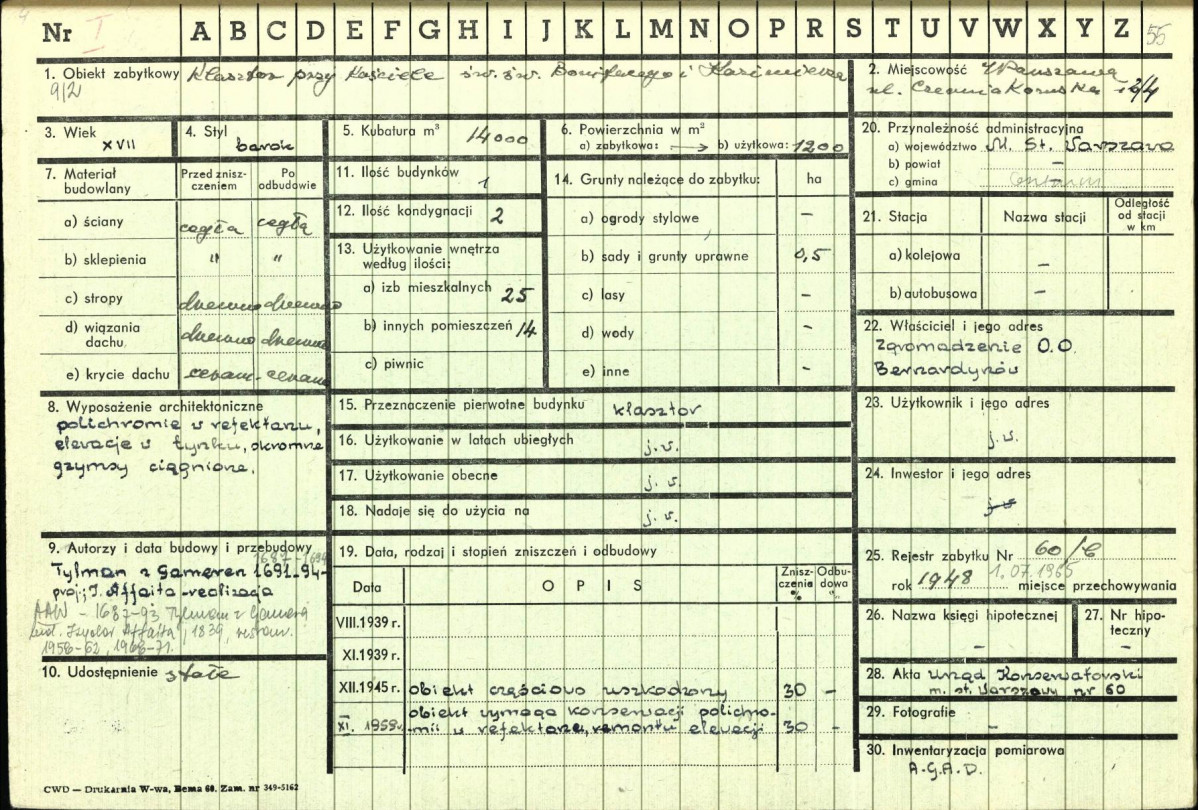 4
Nr I A B C D E F G H I J K L M N O P R S T U V W X Y Z 55
1. Obiekt zabytkowy Klasztor przy Kościele św. św. Bonifacego i Kazimierza
9/2
2. Miejscowość Warszawa
ul. Czerniakowska 2/4
3. Wiek
XVII
4. Styl
barok
5. Kubatura m³ 14000
6. Powierzchnia w m²
a) zabytkowa: → b) użytkowa: 1200
20. Przynależność administracyjna
a) województwo M. St. Warszawa
b) powiat –
c) gmina –
7. Materiał budowlany
Przed zniszczeniem
Po odbudowie
a) ściany cegła cegła
b) sklepienia " "
c) stropy drewno drewno
d) wiązania dachu drewno drewno
e) krycie dachu ceram. ceram.
11. Ilość budynków 1
12. Ilość kondygnacji 2
13. Użytkowanie wnętrza według ilości:
a) izb mieszkalnych 25
b) innych pomieszczeń 14
c) piwnic
14. Grunty należące do zabytku: ha
a) ogrody stylowe –
b) sady i grunty uprawne 0,5
c) lasy –
d) wody –
e) inne –
21. Stacja Nazwa stacji Odległość od stacji w km
a) kolejowa –
b) autobusowa –
22. Właściciel i jego adres
Zgromadzenie O.O.
Bernardynów
8. Wyposażenie architektoniczne
polichromie w refektarzu,
elewacje w tynku, skromne
gzymsy ciągnione.
15. Przeznaczenie pierwotne budynku klasztor
16. Użytkowanie w latach ubiegłych j. w.
17. Użytkowanie obecne j. w.
18. Nadaje się do użycia na j. w.
23. Użytkownik i jego adres
j. w.
24. Inwestor i jego adres
j. w.
9. Autorzy i data budowy i przebudowy
Tylman z Gameren 1691-94-
proj; I. Affaita-realizacja
AAW - 1687-93 Tylman z Gameren
bud. Izydor Affaita, 1839, restaur.
1956-62, 1968-71.
10. Udostępnienie stałe
19. Data, rodzaj i stopień zniszczeń i odbudowy
Data OPIS Zniszczenie % Odbudowa %
VIII.1939 r.
XI.1939 r.
XII.1945 r. obiekt częściowo uszkodzony 30 –
XI. 1959 r. obiekt wymaga konserwacji polichro-
mii w refektarzu, remontu elewacji 30 –
25. Rejestr zabytku Nr 60/6
rok 1948 1.07.1965 miejsce przechowywania
26. Nazwa księgi hipotecznej
–
27. Nr hipoteczny
–
28. Akta Urząd Konserwatorski
m. st. Warszawy nr 60
29. Fotografie
–
30. Inwentaryzacja pomiarowa
A.G.A.D.
CWD — Drukarnia W-wa, Bema 60. Zam. nr 349-5162